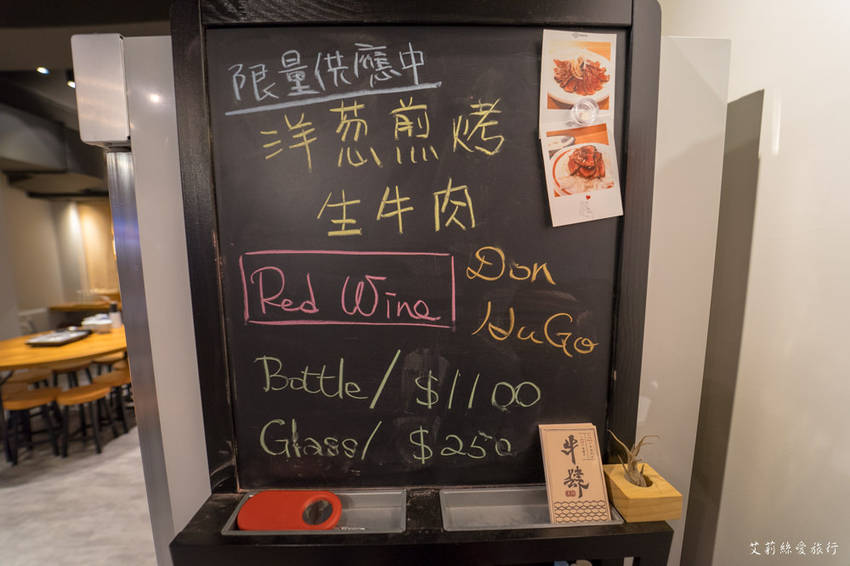 限量供應中
洋蔥煎烤
生牛肉
Red Wine
Don
HuGo
Bottle/ $1100
Glass/ $250
半肆
艾莉絲愛旅行